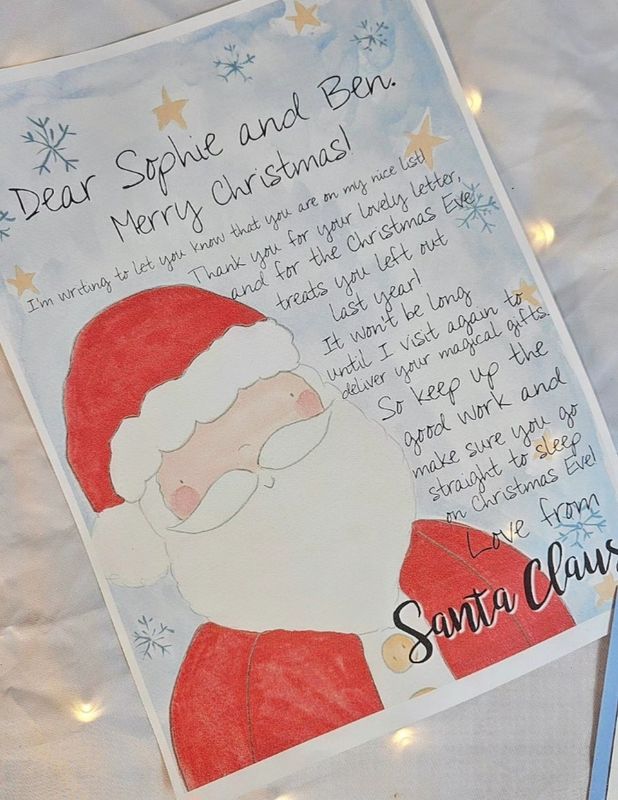 Dear Sophie and Ben.
Merry Christmas!
I'm writing to let you know that you are on my nice list!
Thank you for your lovely letter,
and for the Christmas Eve
treats you left out
last year!
It won't be long
until I visit again to
deliver your magical gifts.
So keep up the
good work and
make sure you go
straight to sleep
on Christmas Eve!
Love from
Santa Claus